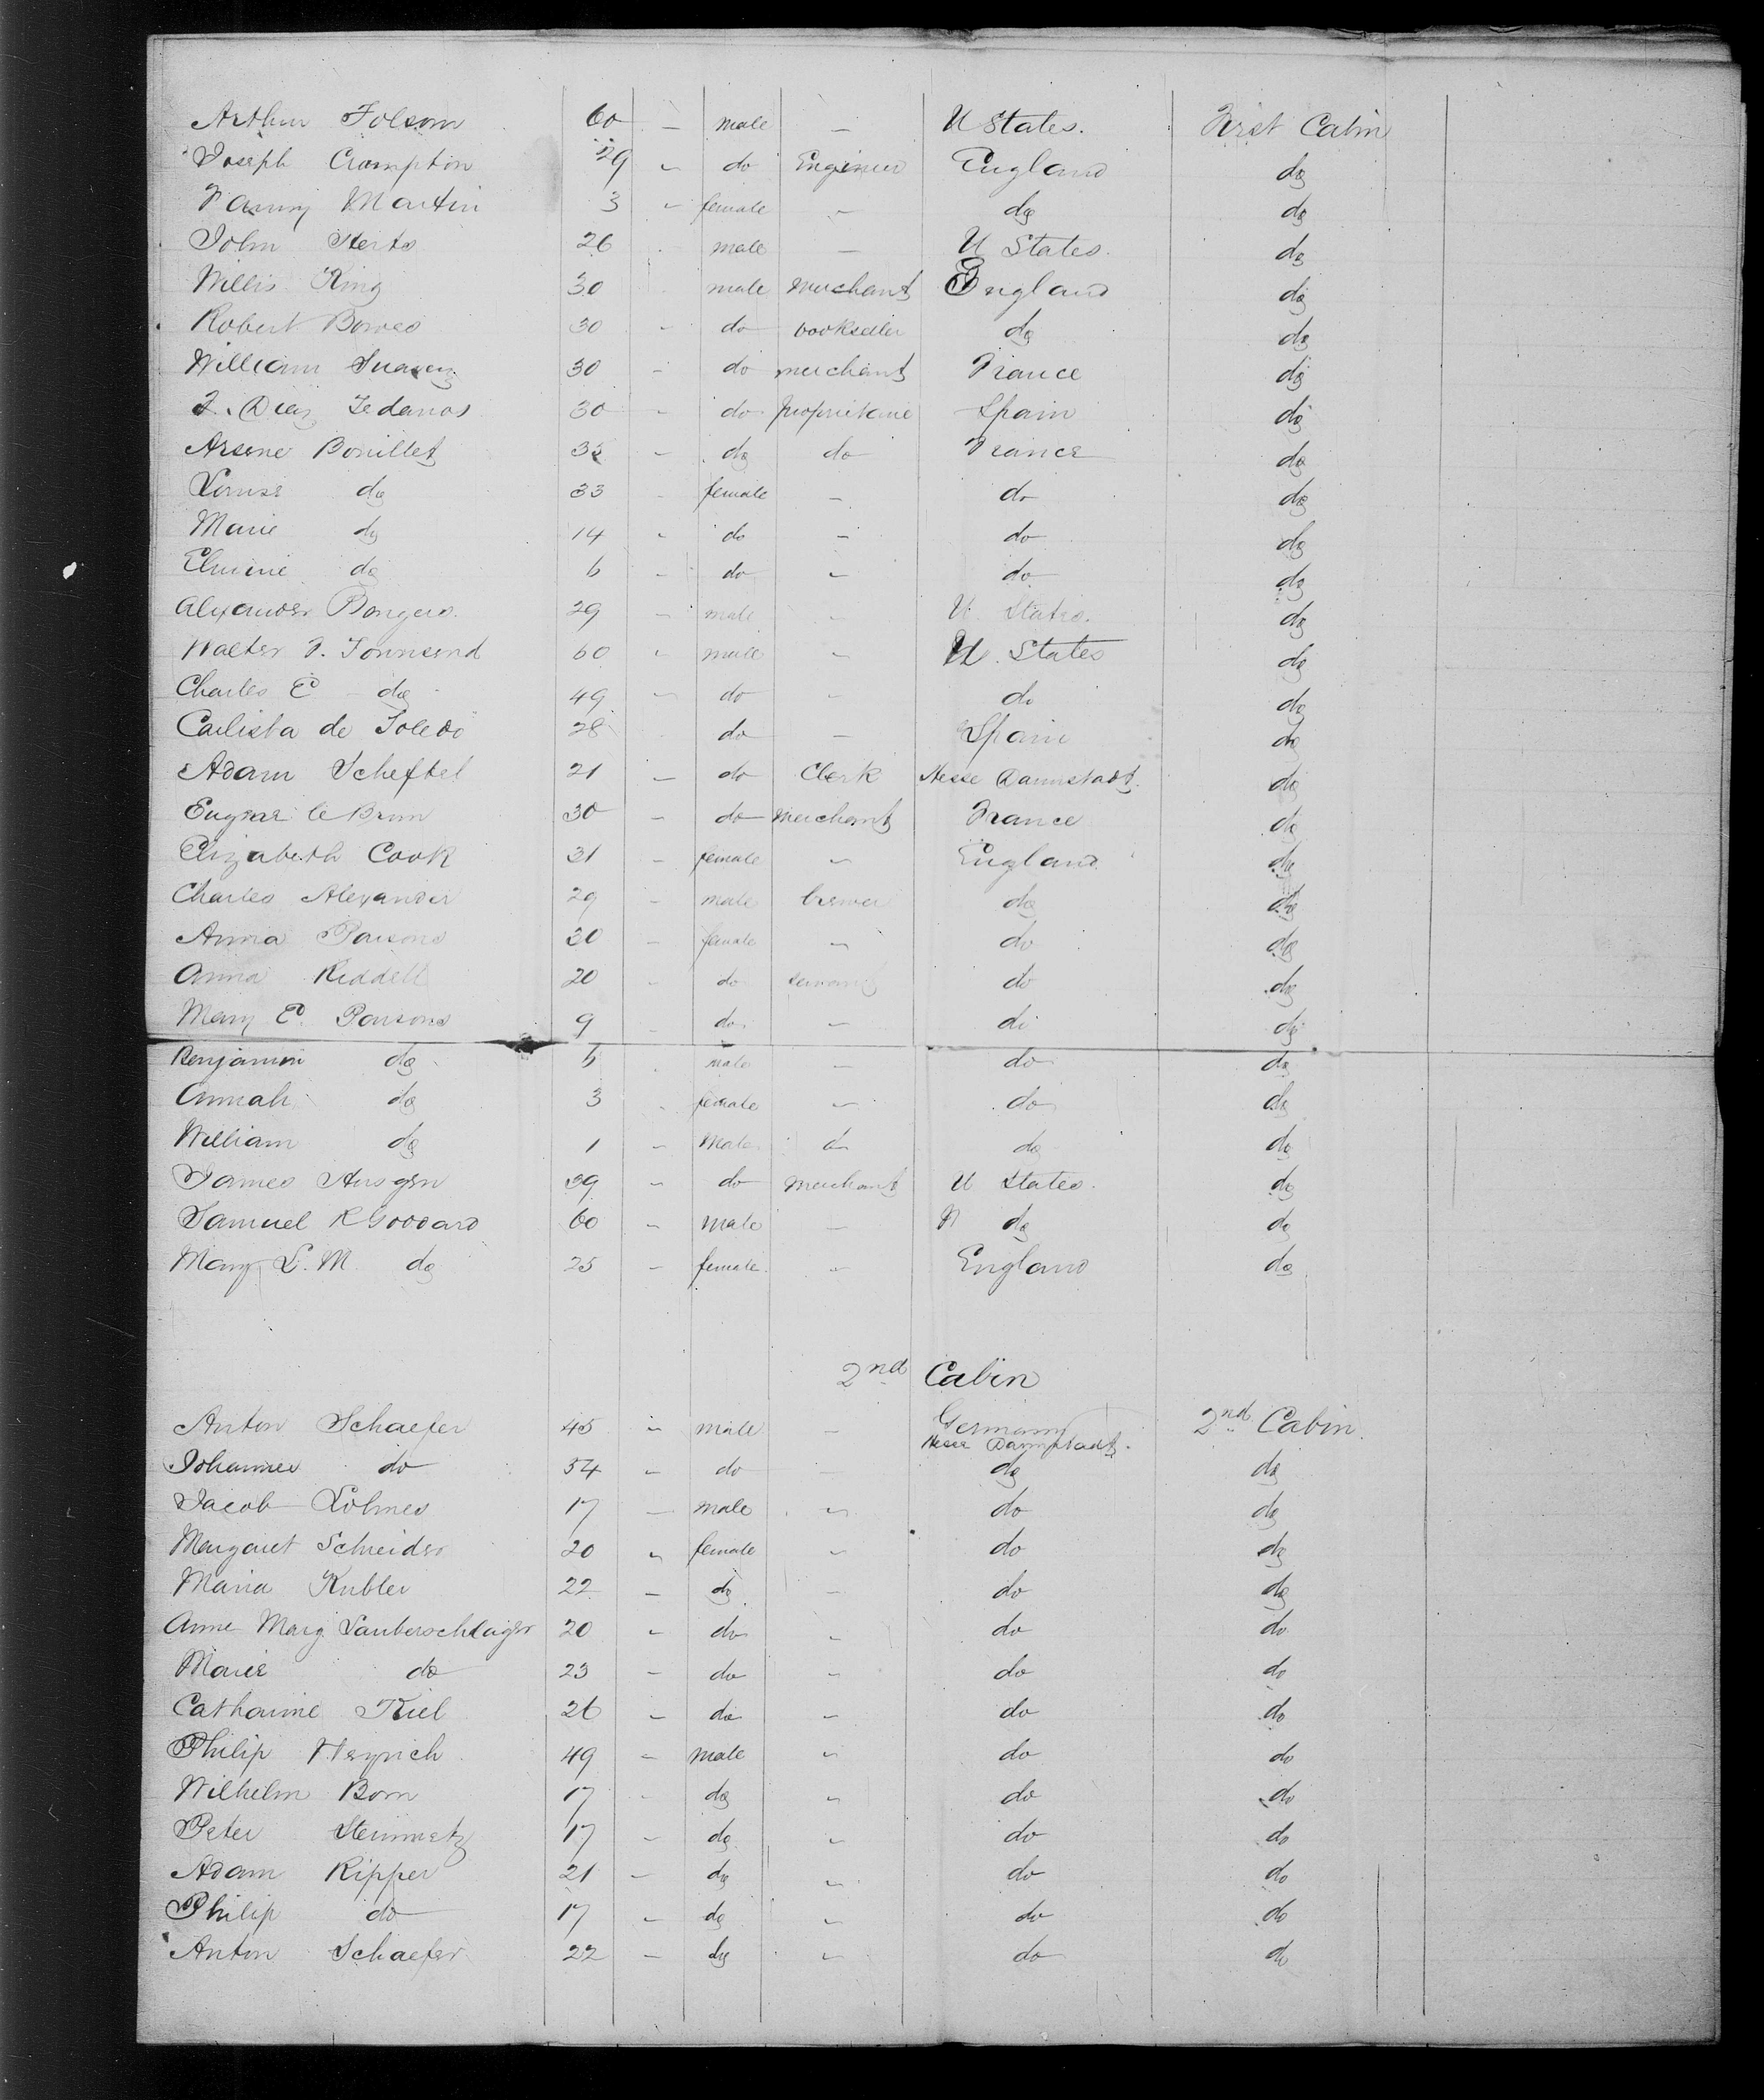 Arthur Folsom 60 – male – U States. First Cabin
Joseph Crompton 29 – do Engineer England do
Fanny Martin 3 – female – do do
John 26 male – U States. do
Willis King 30 male merchant England do
Robert Bowes 30 – do bookseller do do
William Suarez 30 – do merchant France do
Diaz 30 – do proprietaire Spain do
Arsene Bouillet 33 – do do France do
Louise do 33 female – do do
Marie do 14 – do – do do
do 6 – do – do do
Alexander 29 – male – U. States. do
Walter F. Townsend 60 – male – U. States do
Charles E do 49 – do – do do
Calista de Toledo 28 do – Spain do
Adam Scheftel 21 – do Clerk Hesse Darmstadt do
Eugene le Brun 30 – do merchant France do
Elizabeth Cook 31 – female – England do
Charles Alexander 29 – male do do
Anna Parsons 30 – female – do do
Anna Riddell 20 – do servant do do
Mary E. Parsons 9 – do – do do
Benjamin do 5 male – do do
Annah do 3 female – do do
William do 1 – Male do do do
James 39 – do merchant U States. do
Samuel R Goddard 60 – male – do do
Mary L. M. do 25 – female – England do
2nd Cabin
Anton Schaefer 45 – male – Germany 2nd Cabin
Hesse Darmstadt.
Johannes do 54 – do do do
Jacob 17 – male – do do
Margaret Schneider 20 – female – do do
Maria Kubler 22 – do – do do
Anne Marg Lauberschlager 20 – do – do do
Marie do 23 – do – do do
Catharine Kiel 26 – do – do do
Philip Heyrich 49 – male – do do
Wilhelm Born 17 – do – do do
Peter Steinmetz 17 – do – do do
Adam Ripper 21 – do – do do
Philip do 17 – do – do do
Anton Schaefer 22 – do – do do